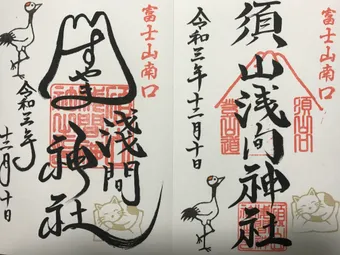 富士山南口
須山浅间神社
令和三年十二月十日
須山口
登山道
富士山南口
すやま
浅間
神社
令和三年
十二月十日